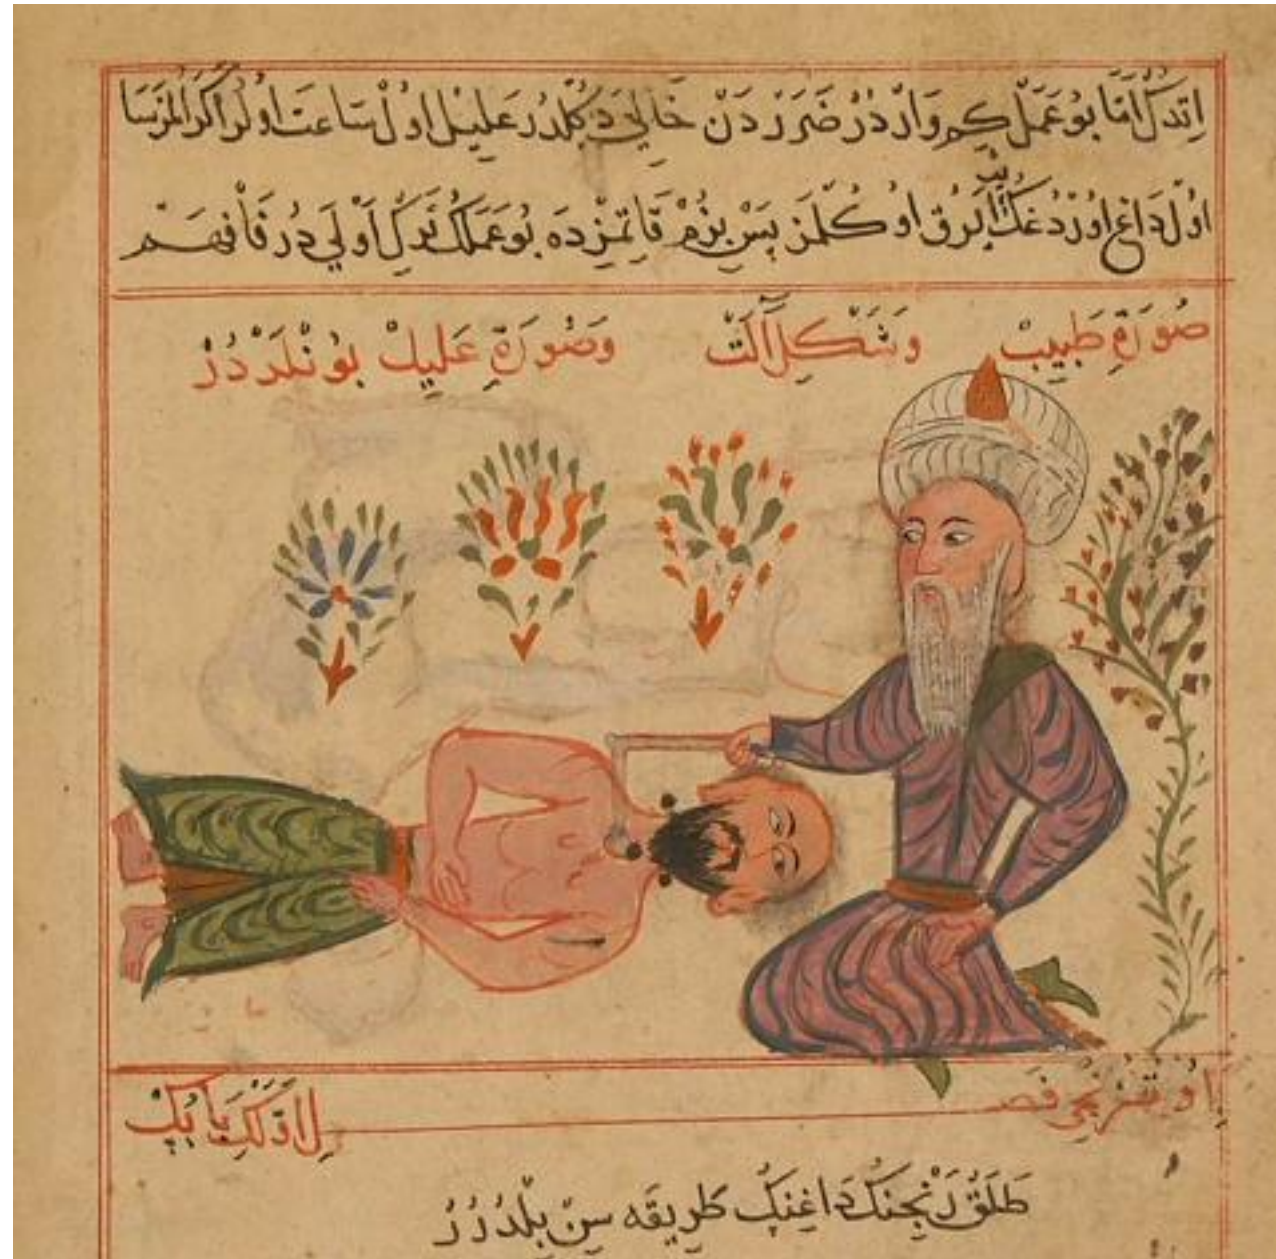 اِتْدُكْ اَمَّا بُو عَمَلْ كِمْ وَارْدُرْ ضَرَرْدَنْ خَالِي دَكُلْدُرْ عَلِيلْ اوُلْ سَاعَتْ اوُلُرْ اَكَرْ اُلْمَزْسَا
اوُلْ دَاغْ اوُرْدُغُكْ يِرْ اَيُرُقْ اوُكُلْمَزْ پَسْ بِزُمْ قَاتِمِزْدَه بُو عَمَلُكْ تَرْكِ اَوْلَي دُرْ فَافْهَمْ
صُورَةِ طَبِيبْ وَشَكْلِ آلَتْ وَصُورَةِ عَلِيلْ بُونْلَرْدُرْ
اوُنْقُزِنْجِي فَصِلْ اَوَّلْكِ بَابُكْ
طَلَقْ رَنْجِنُكْ دَاغِنِكْ طَرِيقَه سِنْ بِلْدُرُرْ